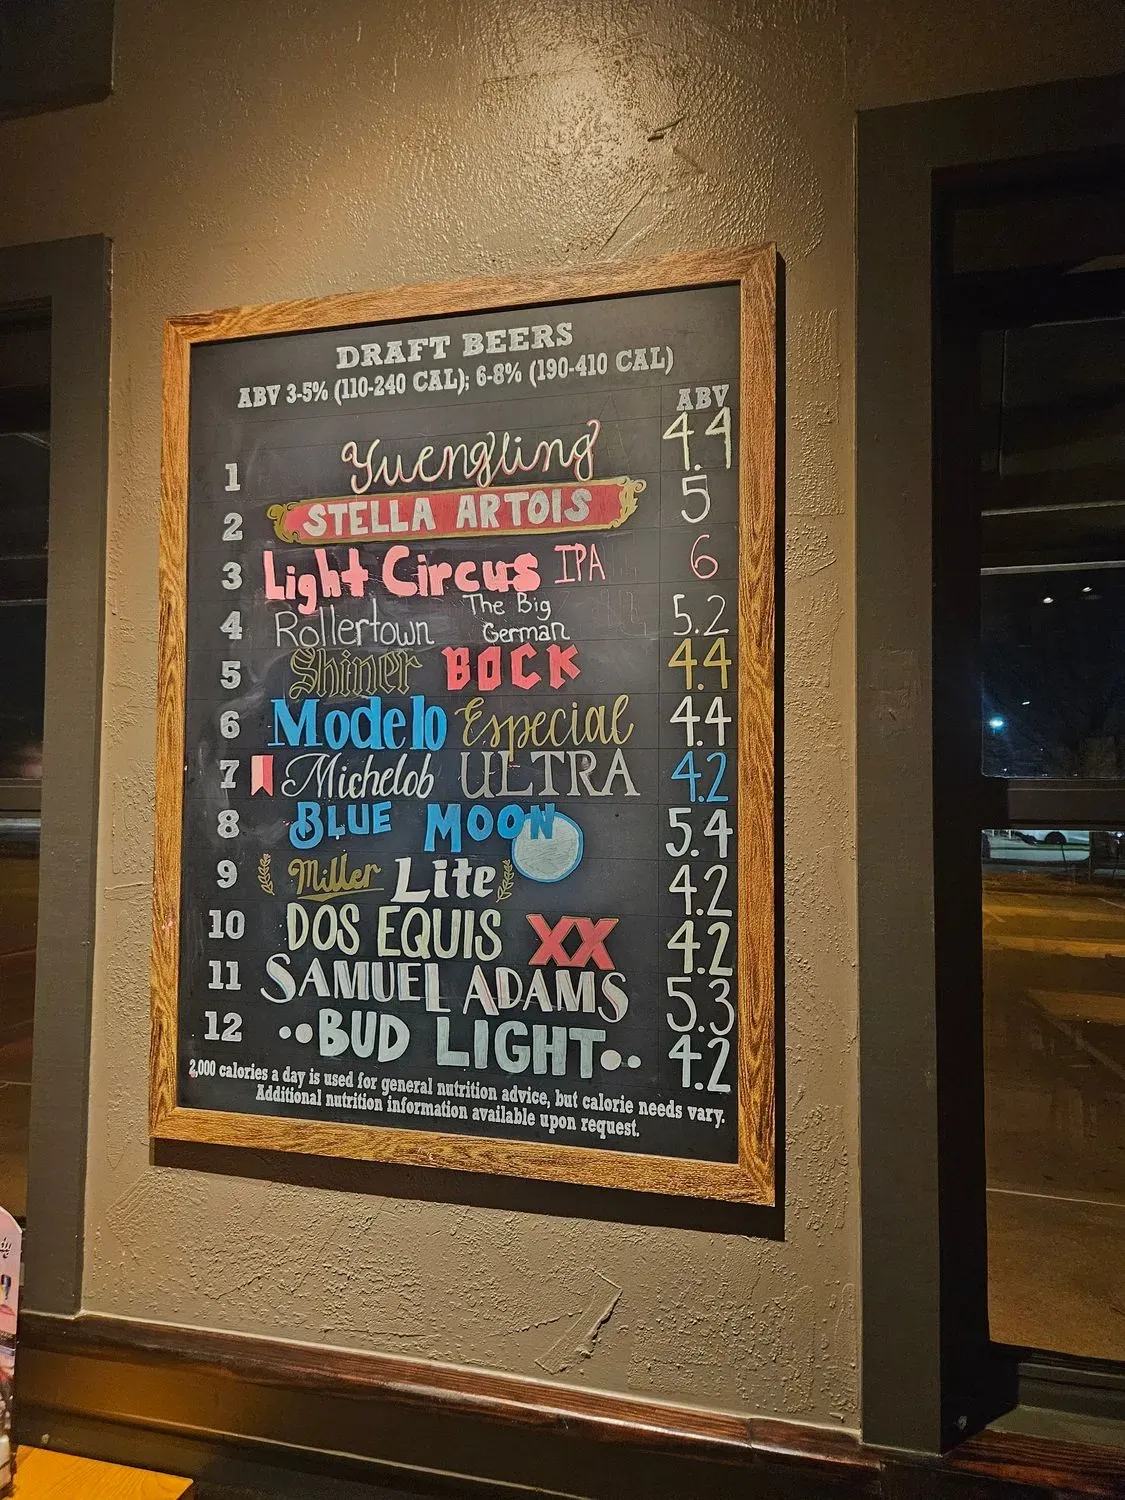 DRAFT BEERS
ABV 3-5% (110-240 CAL); 6-8% (190-410 CAL)
ABV
1 Yuengling 4.4
2 STELLA ARTOIS 5
3 Light Circus IPA 6
4 Rollertown The Big German 5.2
5 Shiner BOCK 4.4
6 Modelo Especial 4.4
7 Michelob ULTRA 4.2
8 BLUE MOON 5.4
9 Miller Lite 4.2
10 DOS EQUIS XX 4.2
11 SAMUEL ADAMS 5.3
12 BUD LIGHT 4.2
2,000 calories a day is used for general nutrition advice, but calorie needs vary.
Additional nutrition information available upon request.